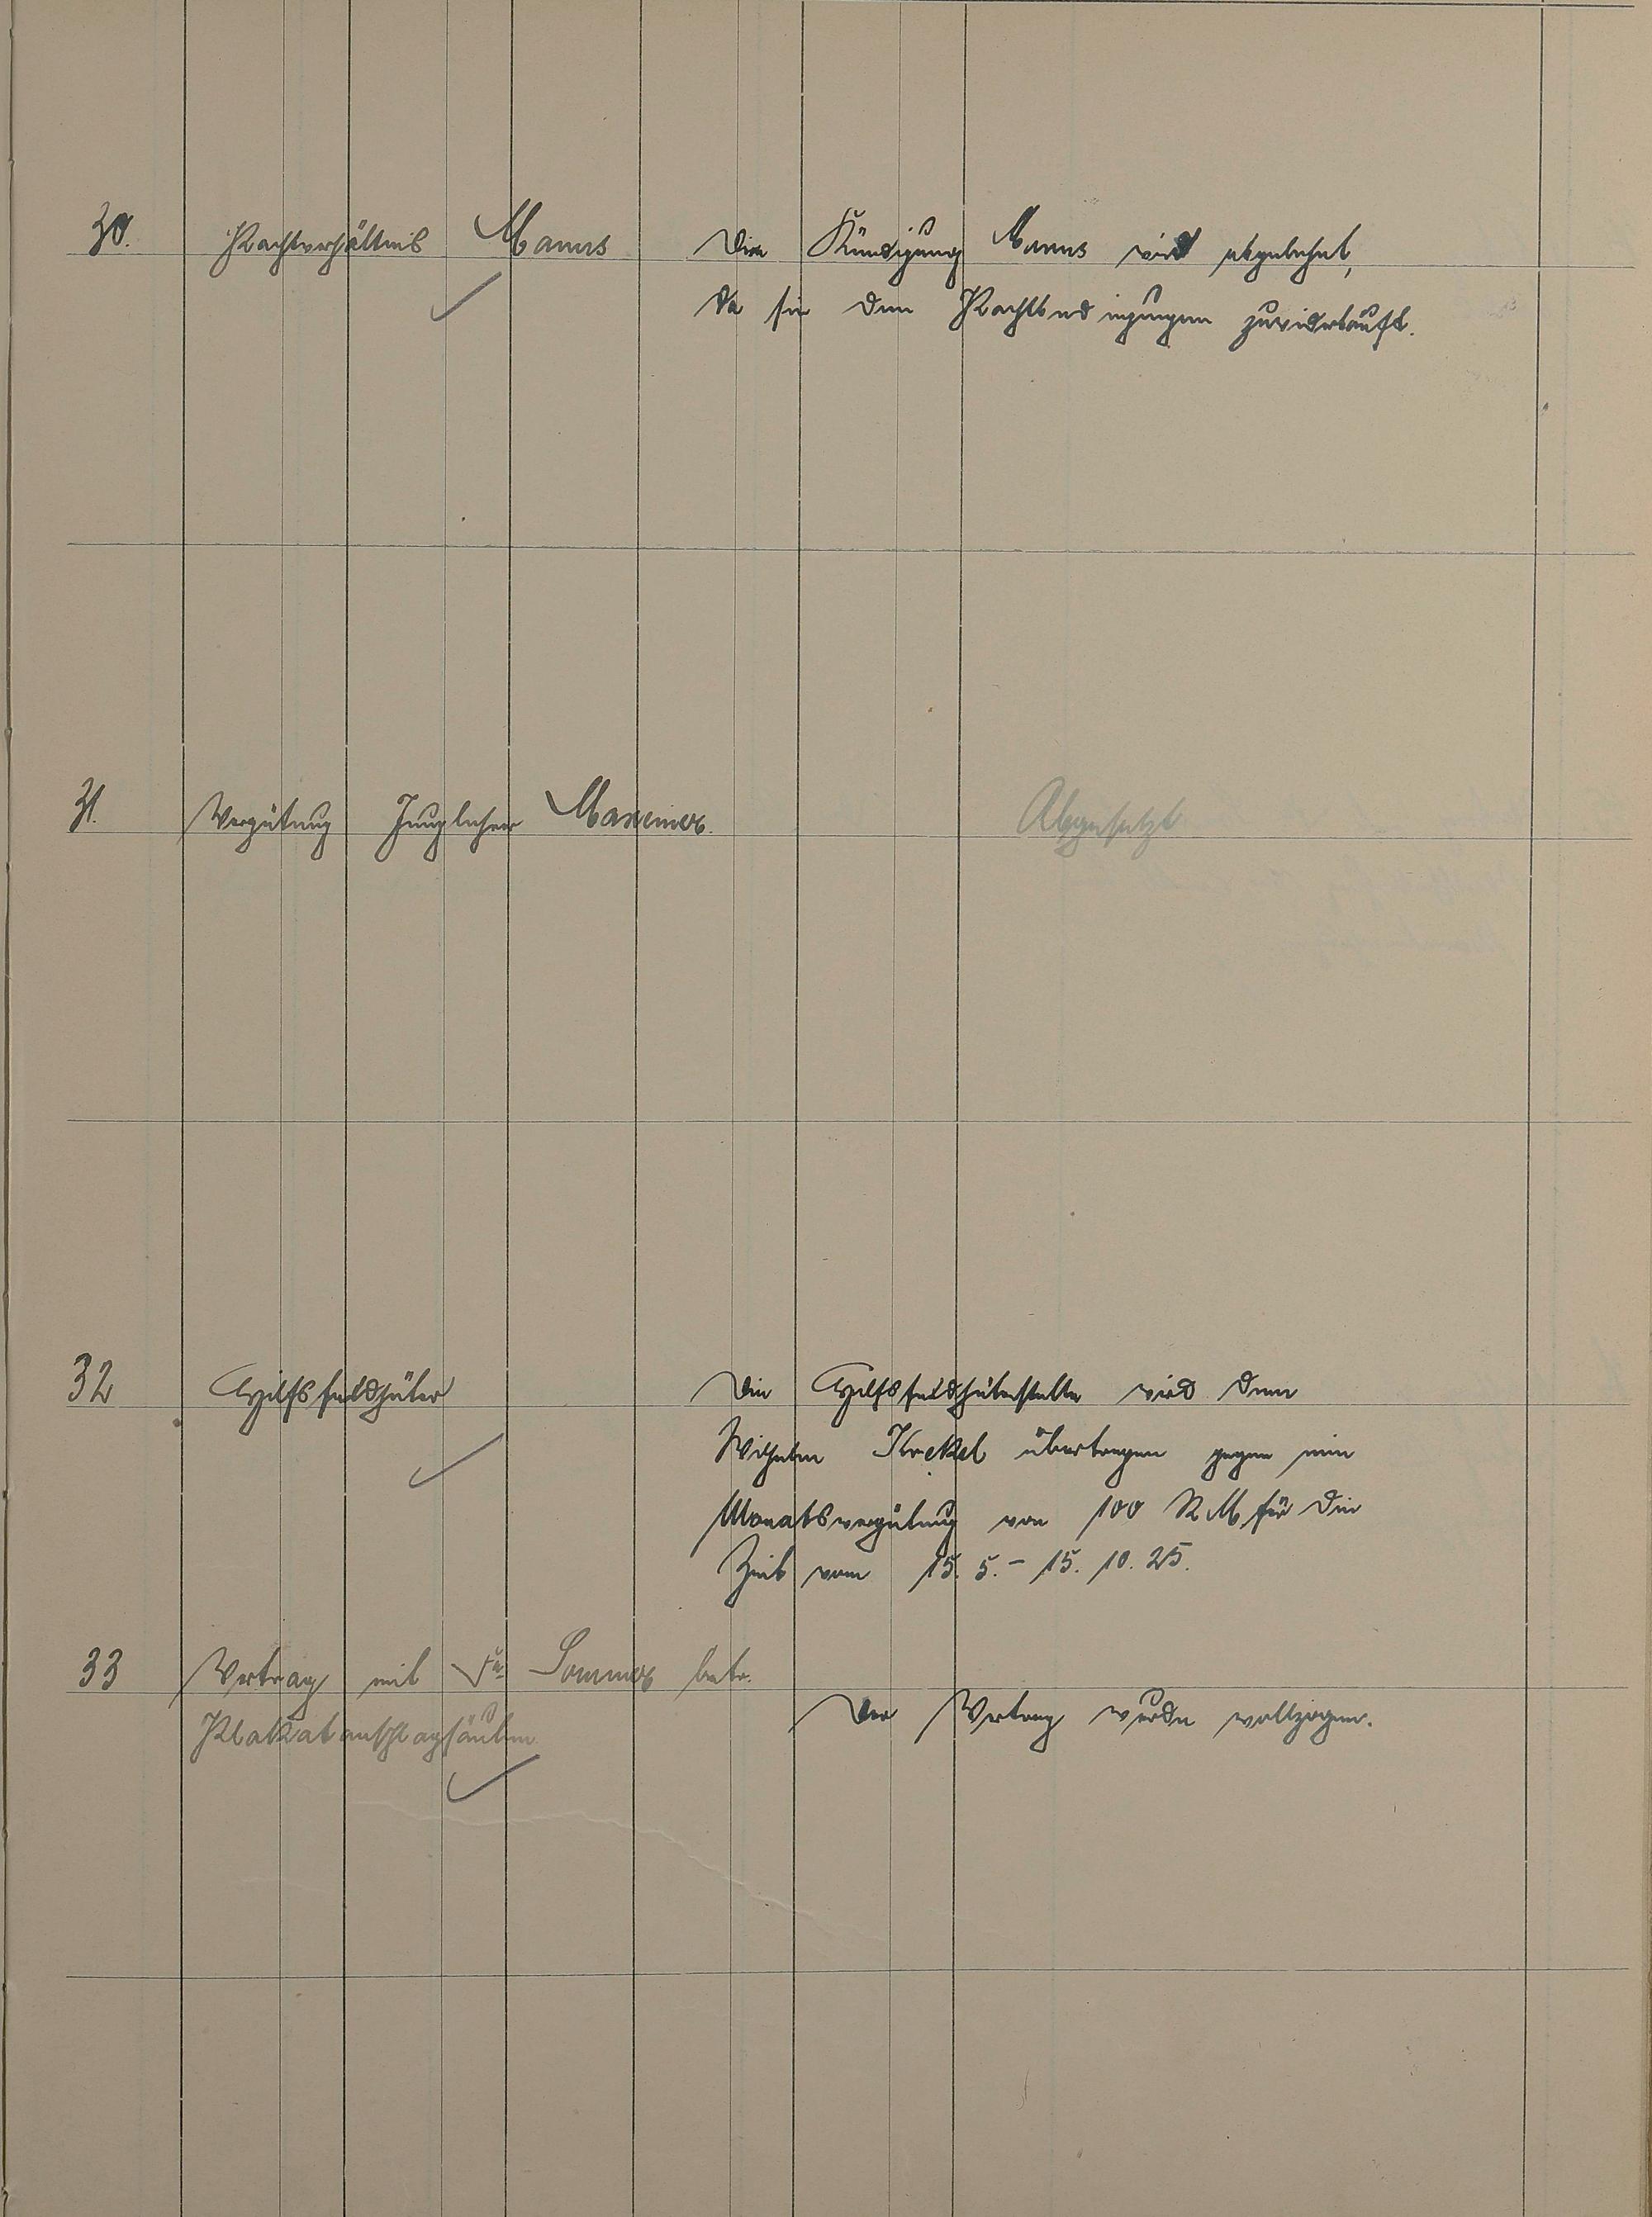 30. Pachtverhältnis Manns
Die Kündigung Manns wird abgelehnt,
da sie den Pachtbedingungen zuwiderläuft.
31. Vergütung Junglehrer Maxeiner.
Abgesetzt
32 Hilfsfeldhüter
Die Hilfsfeldhüterstelle wird dem
Wilhelm Krekel übertragen gegen eine
Monatsvergütung von 100 RM für die
Zeit vom 15. 5. - 15. 10. 25.
33 Vertrag mit Fa. Sommer betr.
Plakatanschlagsäulen
Der Vertrag wurde vollzogen.